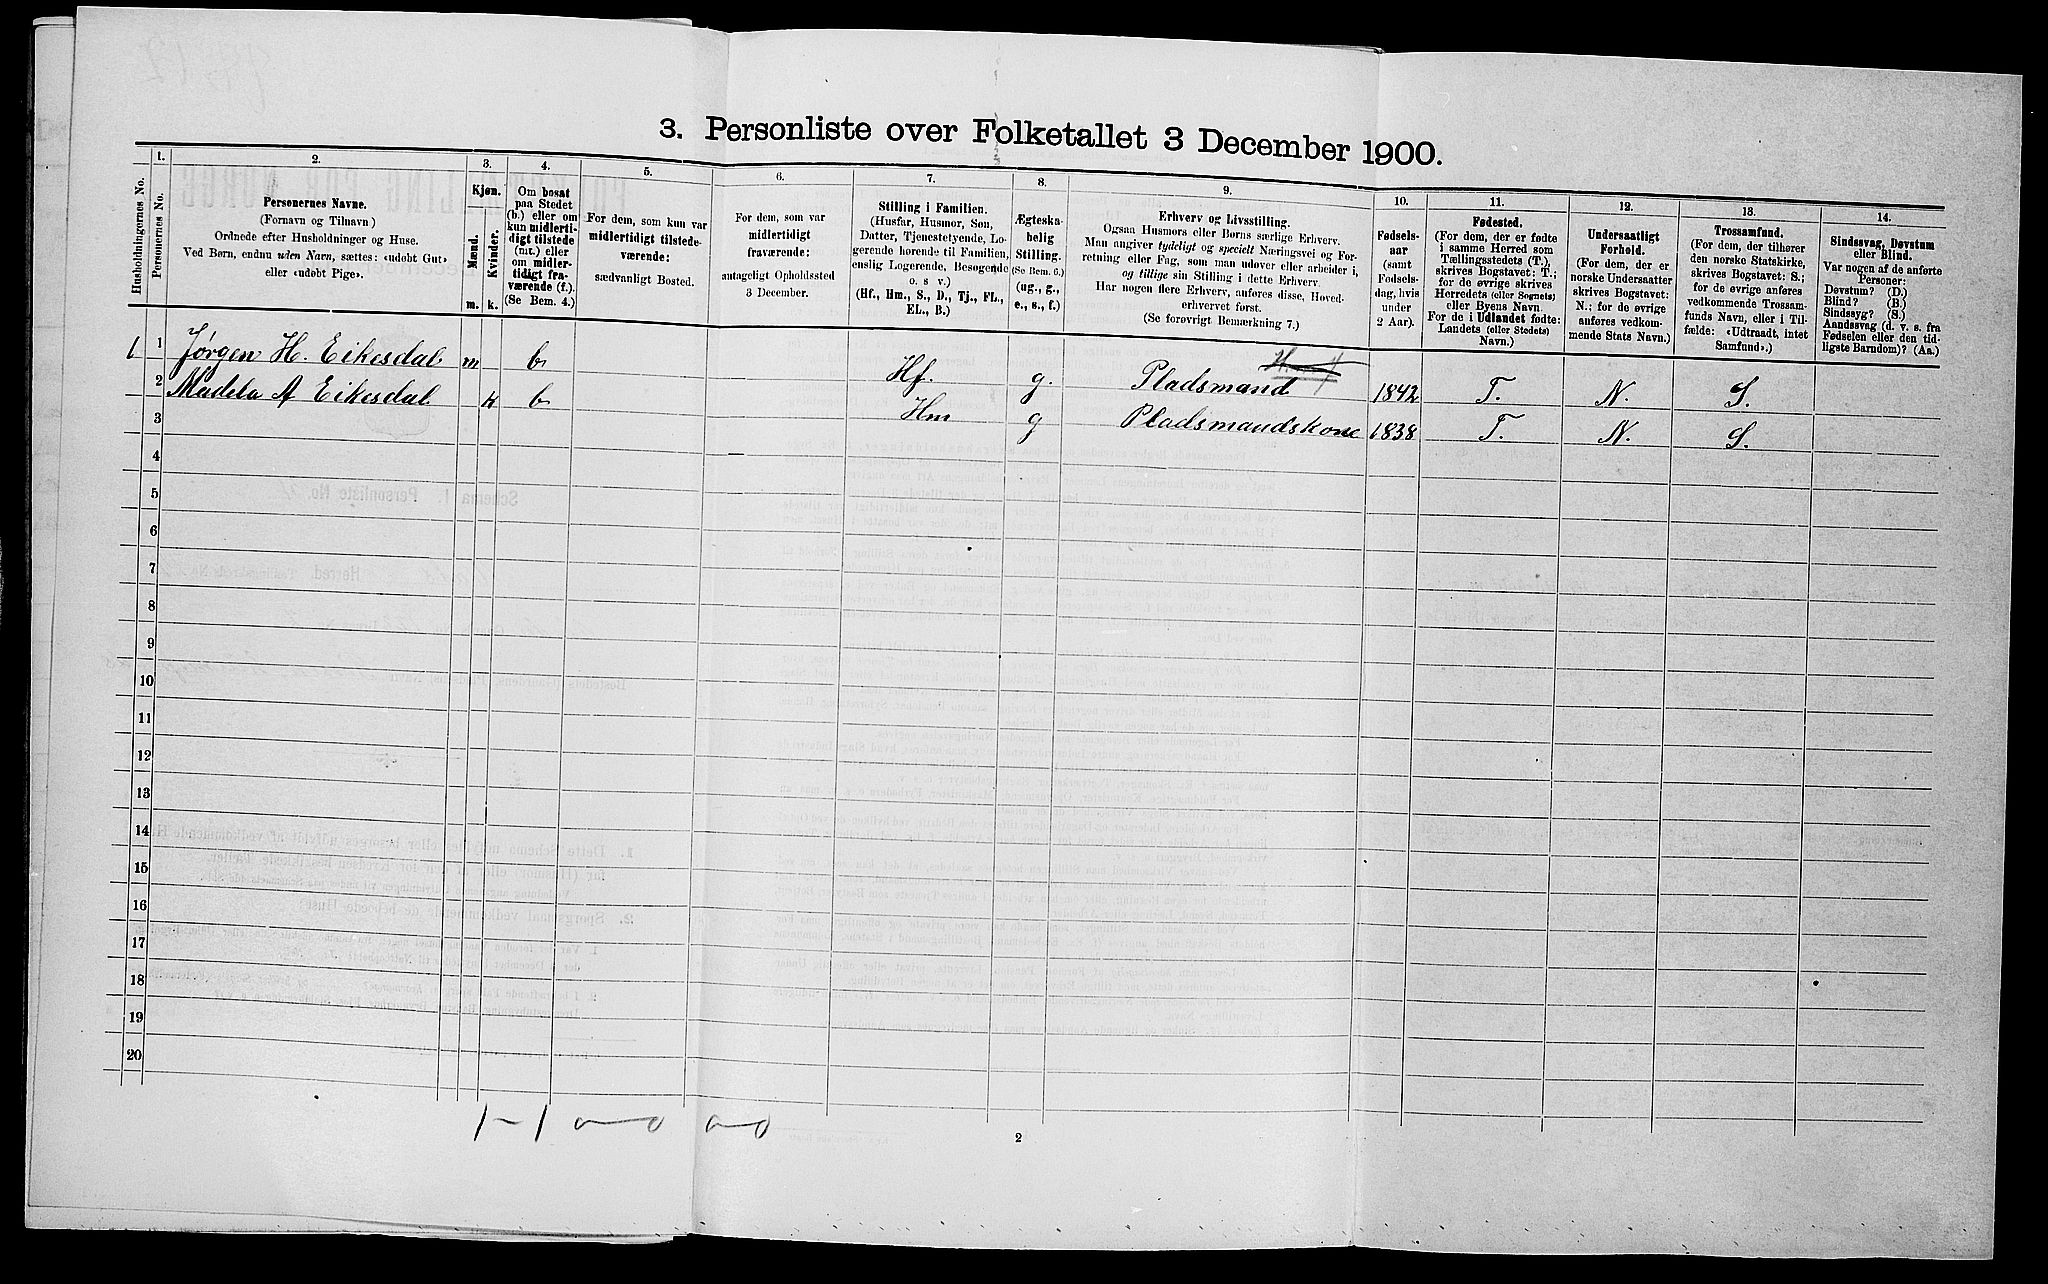 3. Personliste over Folketallet 3 December 1900.
Husholdningernes No.
1.
Personernes No.
2.
Personernes Navne.
(Fornavn og Tilnavn)
Ordnede efter Husholdninger og Huse.
Ved Børn, endnu uden Navn, sættes: «udøbt Gut»
eller «udøbt Pige».
3.
Kjøn.
Mænd.
Kvinder.
m. k.
4.
Om bosat
paa Stedet
(b.) eller om
kun midlerti-
digt tilstede
(mt.) eller
om midler-
tidigt fra-
værende (f.).
(Se Bem. 4.)
5.
For dem, som kun var
midlertidigt tilstede-
værende:
sædvanligt Bosted.
6.
For dem, som var
midlertidigt
fraværende:
antageligt Opholdssted
3 December.
7.
Stilling i Familien.
(Husfar, Husmor, Søn,
Datter, Tjenestetyende, Lo-
gerende hørende til Familien,
enslig Logerende, Besøgende
o. s v.)
(Hf., Hm., S., D., Tj., FL.,
EL., B.)
8.
Ægteska-
belig
Stilling.
(Se Bem. 6.)
(ug., g.,
e., s., f.)
9.
Erhverv og Livsstilling.
Ogsaa Husmors eller Børns særlige Erhverv.
Man angiver tydeligt og specielt Næringsvei og For-
retning eller Fag, som man udøver eller arbeider i,
og tillige sin Stilling i dette Erhverv.
Har nogen flere Erhverv, anføres disse, Hoved-
erhvervet først.
(Se forøvrigt Bemærkning 7.)
10.
Fødsels-
aar
(samt
Fødsels-
dag, hvis
under
2 Aar).
11.
Fødested.
(For dem, der er fødte
i samme Herred som
Tællingsstedets (T.),
skrives Bogstavet: T.;
for de øvrige skrives
Herredets (eller Sognets)
eller Byens Navn.
For de i Udlandet fødte:
Landets (eller Stedets)
Navn.)
12.
Undersaatligt
Forhold.
(For dem, der er
norske Undersaatter
skrives Bogstavet:
N.; for de øvrige
anføres vedkom-
mende Stats Navn.)
13.
Trossamfund.
(For dem, der tilhører
den norske Statskirke,
skrives Bogstavet: S.;
for de øvrige anføres
vedkommende Trossam-
funds Navn, eller i Til-
fælde: «Udtraadt, intet
Samfund».)
14.
Sindssvag, Døvstum
eller Blind.
Var nogen af de anførte
Personer:
Døvstum? (D.)
Blind? (B.)
Sindssyg? (S.)
Aandssvag (d. v. s. fra
Fødselen eller den tid-
ligste Barndom)? (Aa.)
1 1 Jørgen H. Eikesdal m b Hf. g. Pladsmand 1842 T. N. S.
2 Madela A Eikesdal k b Hm g Pladsmandskone 1838 T. N. S.
3
4
5
6
7
8
9
10
11
12
13
14
15
16
17
18
19
20
1-1 0-0 0-0
2